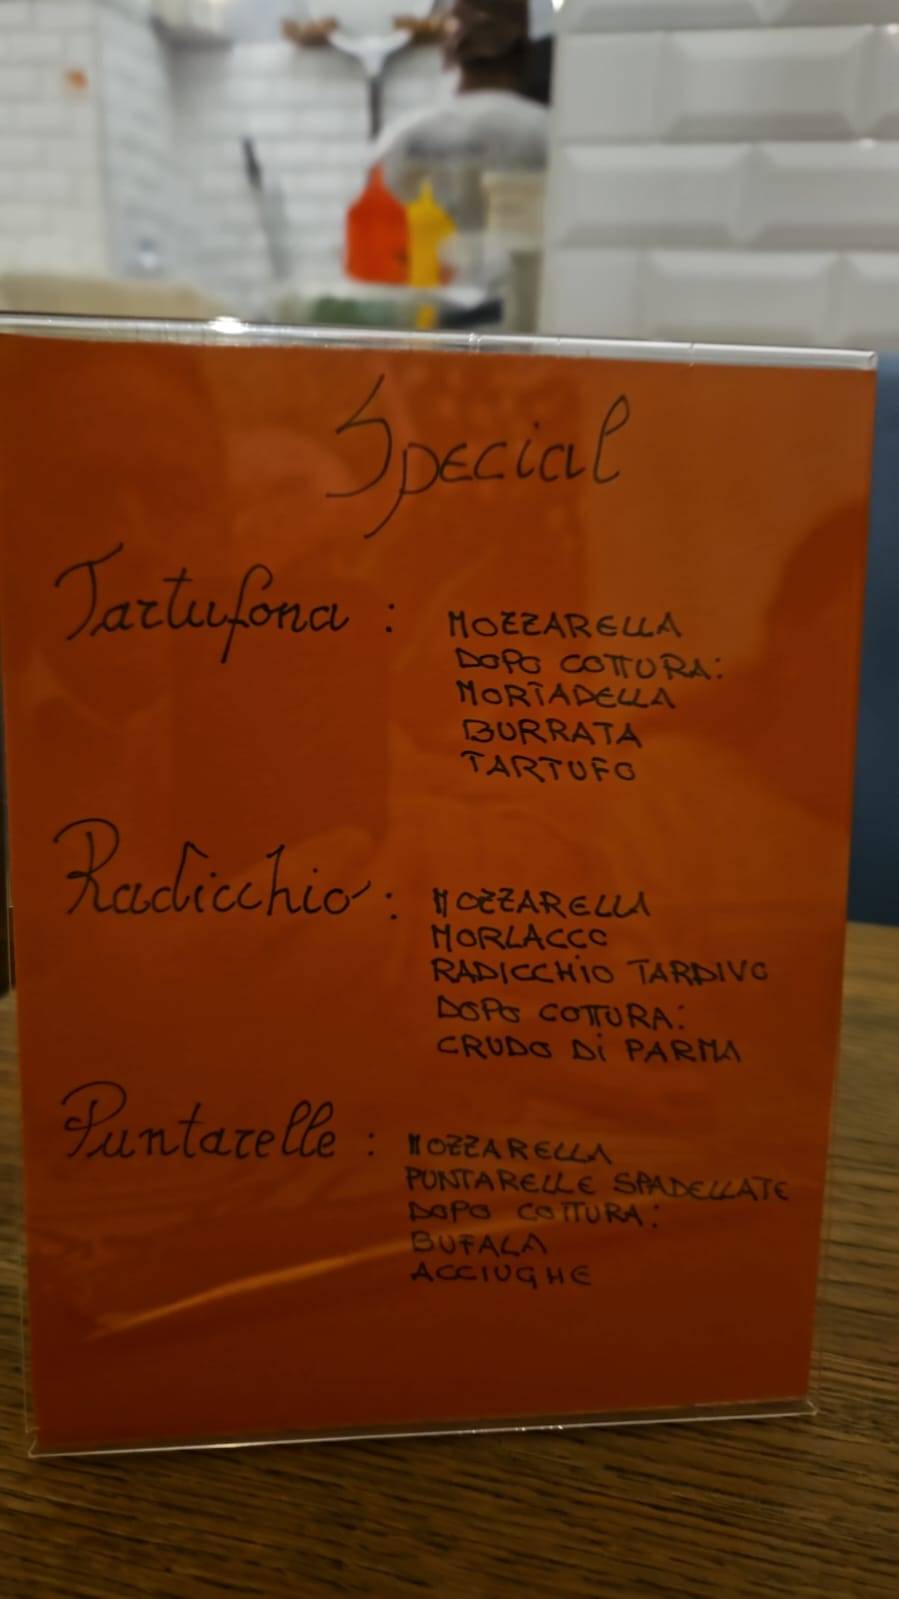 Special
Tartufona : MOZZARELLA
DOPO COTTURA:
MORTADELLA
BURRATA
TARTUFO
Radicchio : MOZZARELLA
MORLACCO
RADICCHIO TARDIVO
DOPO COTTURA:
CRUDO Di PARMA
Puntarelle : MOZZARELLA
PUNTARELLE SPADELLATE
DOPO COTTURA:
BUFALA
ACCIUGHE